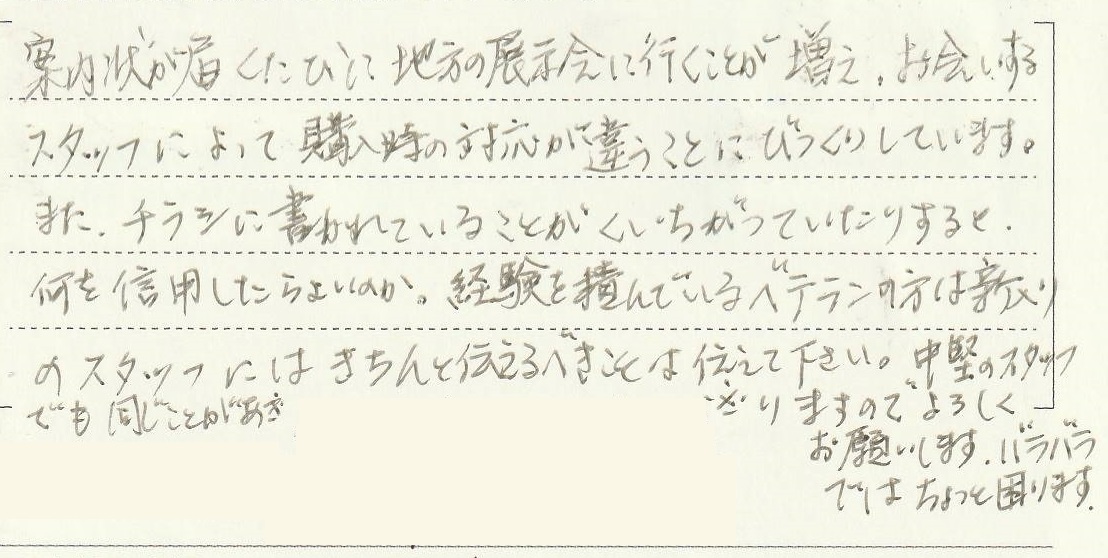 案内状が届くたびに地方の展示会に行くことが増え、お会いする
スタッフによって購入時の対応が違うことにびっくりしています。
また、チラシに書かれていることがくいちがっていたりすると、
何を信用したらよいのか。経験を積んでいるベテランの方は新入り
のスタッフにはきちんと伝えるべきことは伝えて下さい。中堅のスタッフ
でも同じことが
りますのでよろしく
お願いします。バラバラ
ではちょっと困ります。